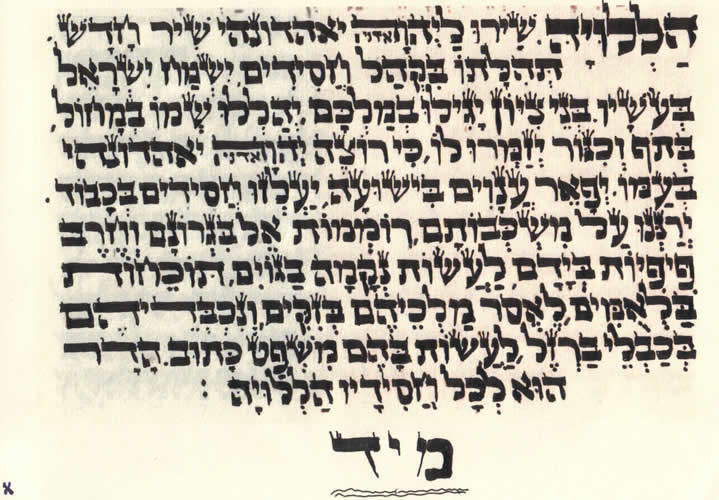 הללויה. שירו ליהוה אדני יאהדונהי שיר חדש
תהלתו בקהל חסידים ישמח ישראל
בעשיו בני ציון יגילו במלכם יהללו שמו במחול
בתף וכנור יזמרו לו, כי רוצה יהוה אדני יאהדונהי
בעמו יפאר ענוים בישועה, יעלזו חסידים בכבוד
ירננו על משכבותם, רוממות אל בגרונם וחרב
פיפיות בידם, לעשות נקמה בגוים, תוכחות
בלאמים, לאסר מלכיהם בזקים, ונכבדיהם
בכבלי ברזל, לעשות בהם משפט כתוב הדר
הוא לכל חסידיו הללויה :
מ י ד
א